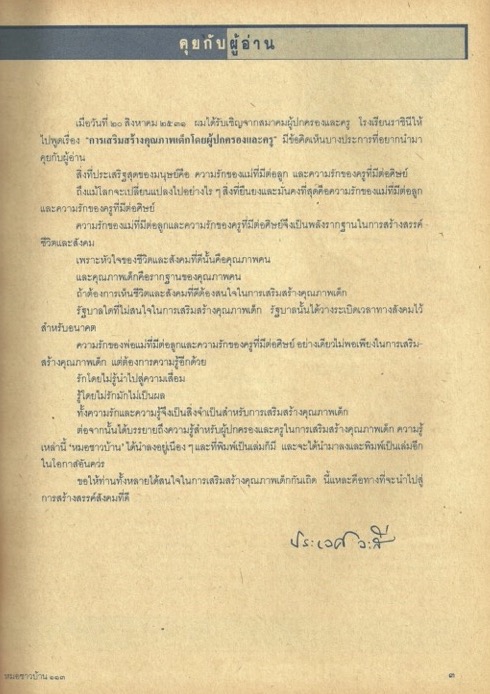 คุยกับผู้อ่าน
เมื่อวันที่ ๒๐ สิงหาคม ๒๕๓๑ ผมได้รับเชิญจากสมาคมผู้ปกครองและครู โรงเรียนราชินีให้
ไปพูดเรื่อง "การเสริมสร้างคุณภาพเด็กโดยผู้ปกครองและครู" มีข้อคิดเห็นบางประการที่อยากนำมา
คุยกับผู้อ่าน
สิ่งที่ประเสริฐสุดของมนุษย์คือ ความรักของแม่ที่มีต่อลูก และความรักของครูที่มีต่อศิษย์
ถึงแม้โลกจะเปลี่ยนแปลงไปอย่างไร ๆ สิ่งที่ยืนยงและมั่นคงที่สุดคือความรักของแม่ที่มีต่อลูก
และความรักของครูที่มีต่อศิษย์
ความรักของแม่ที่มีต่อลูกและความรักของครูที่มีต่อศิษย์จึงเป็นพลังรากฐานในการสร้างสรรค์
ชีวิตและสังคม
เพราะหัวใจของชีวิตและสังคมที่ดีนั้นคือคุณภาพคน
และคุณภาพเด็กคือรากฐานของคุณภาพคน
ถ้าต้องการเห็นชีวิตและสังคมที่ดีต้องสนใจในการเสริมสร้างคุณภาพเด็ก
รัฐบาลใดที่ไม่สนใจในการเสริมสร้างคุณภาพเด็ก รัฐบาลนั้นได้วางระเบิดเวลาทางสังคมไว้
สำหรับอนาคต
ความรักของพ่อแม่ที่มีต่อลูกและความรักของครูที่มีต่อศิษย์ อย่างเดียวไม่พอเพียงในการเสริม-
สร้างคุณภาพเด็ก แต่ต้องการความรู้อีกด้วย
รักโดยไม่รู้นำไปสู่ความเสื่อม
รู้โดยไม่รักมักไม่เป็นผล
ทั้งความรักและความรู้จึงเป็นสิ่งจำเป็นสำหรับการเสริมสร้างคุณภาพเด็ก
ต่อจากนั้นได้บรรยายถึงความรู้สำหรับผู้ปกครองและครูในการเสริมสร้างคุณภาพเด็ก ความรู้
เหล่านี้ 'หมอชาวบ้าน' ได้นำลงอยู่เนือง ๆ และที่พิมพ์เป็นเล่มก็มี และจะได้นำมาลงและพิมพ์เป็นเล่มอีก
ในโอกาสอันควร
ขอให้ท่านทั้งหลายได้สนใจในการเสริมสร้างคุณภาพเด็กกันเถิด นี้แหละคือทางที่จะนำไปสู่
การสร้างสรรค์สังคมที่ดี
ประเวศ วะสี
หมอชาวบ้าน ๑๑๓
๓